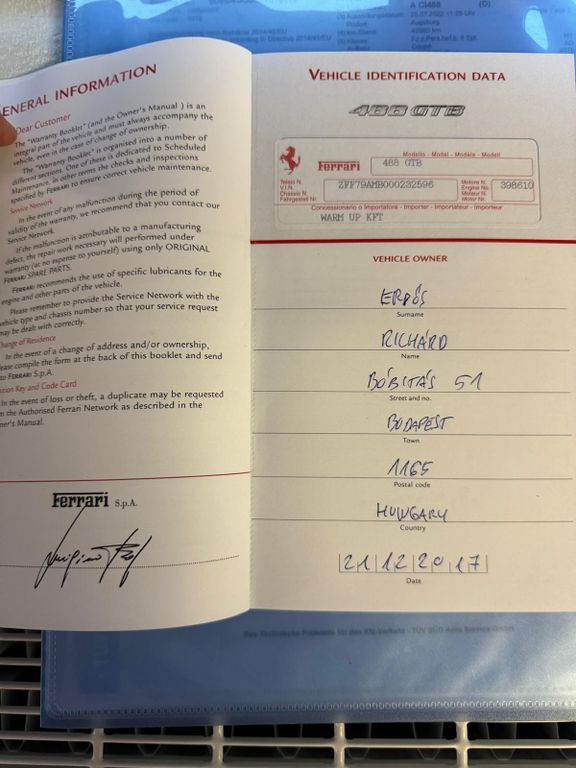 GENERAL INFORMATION
Dear Customer
The "Warranty Booklet" (and the Owner's Manual ) is an
integral part of the vehicle and must always accompany the
vehicle, even in the case of change of ownership.
The "Warranty Booklet" is organised into a number of
different sections. One of these is dedicated to Scheduled
Maintenance, in other terms the checks and inspections
specified by FERRARI to ensure correct vehicle maintenance.
Service Network
In the event of any malfunction during the period of
validity of the warranty, we recommend that you contact our
Service Network.
If the malfunction is attributable to a manufacturing
defect, the repair work necessary will performed under
warranty (at no expense to yourself) using only ORIGINAL
FERRARI SPARE PARTS.
FERRARI recommends the use of specific lubricants for the
engine and other parts of the vehicle.
Please remember to provide the Service Network with the
vehicle type and chassis number so that your service request
may be dealt with correctly.
Change of Residence
In the event of a change of address and/or ownership,
please compile the form at the back of this booklet and send
to FERRARI S.p.A.
Ignition Key and Code Card
In the event of loss or theft, a duplicate may be requested
from the Authorised Ferrari Network as described in the
Owner's Manual.
Ferrari S.p.A.
VEHICLE IDENTIFICATION DATA
488 GTB
Modello - Model - Modèle - Modell
Ferrari 488 GTB
Telaio N.
V.I.N.
Chassis N.
Fahrgestell Nr
ZFF79AMB000232596
Motore N.
Engine No.
Moteur N.
Motor Nr.
398610
Concessionario o Importatore - Importer - Importateur - Importeur
WARM UP KFT
VEHICLE OWNER
ERDŐS
Surname
RICHÁRD
Name
BÓBITÁS 51
Street and no.
BUDAPEST
Town
1165
Postal code
HUNGARY
Country
21 12 2017
Date